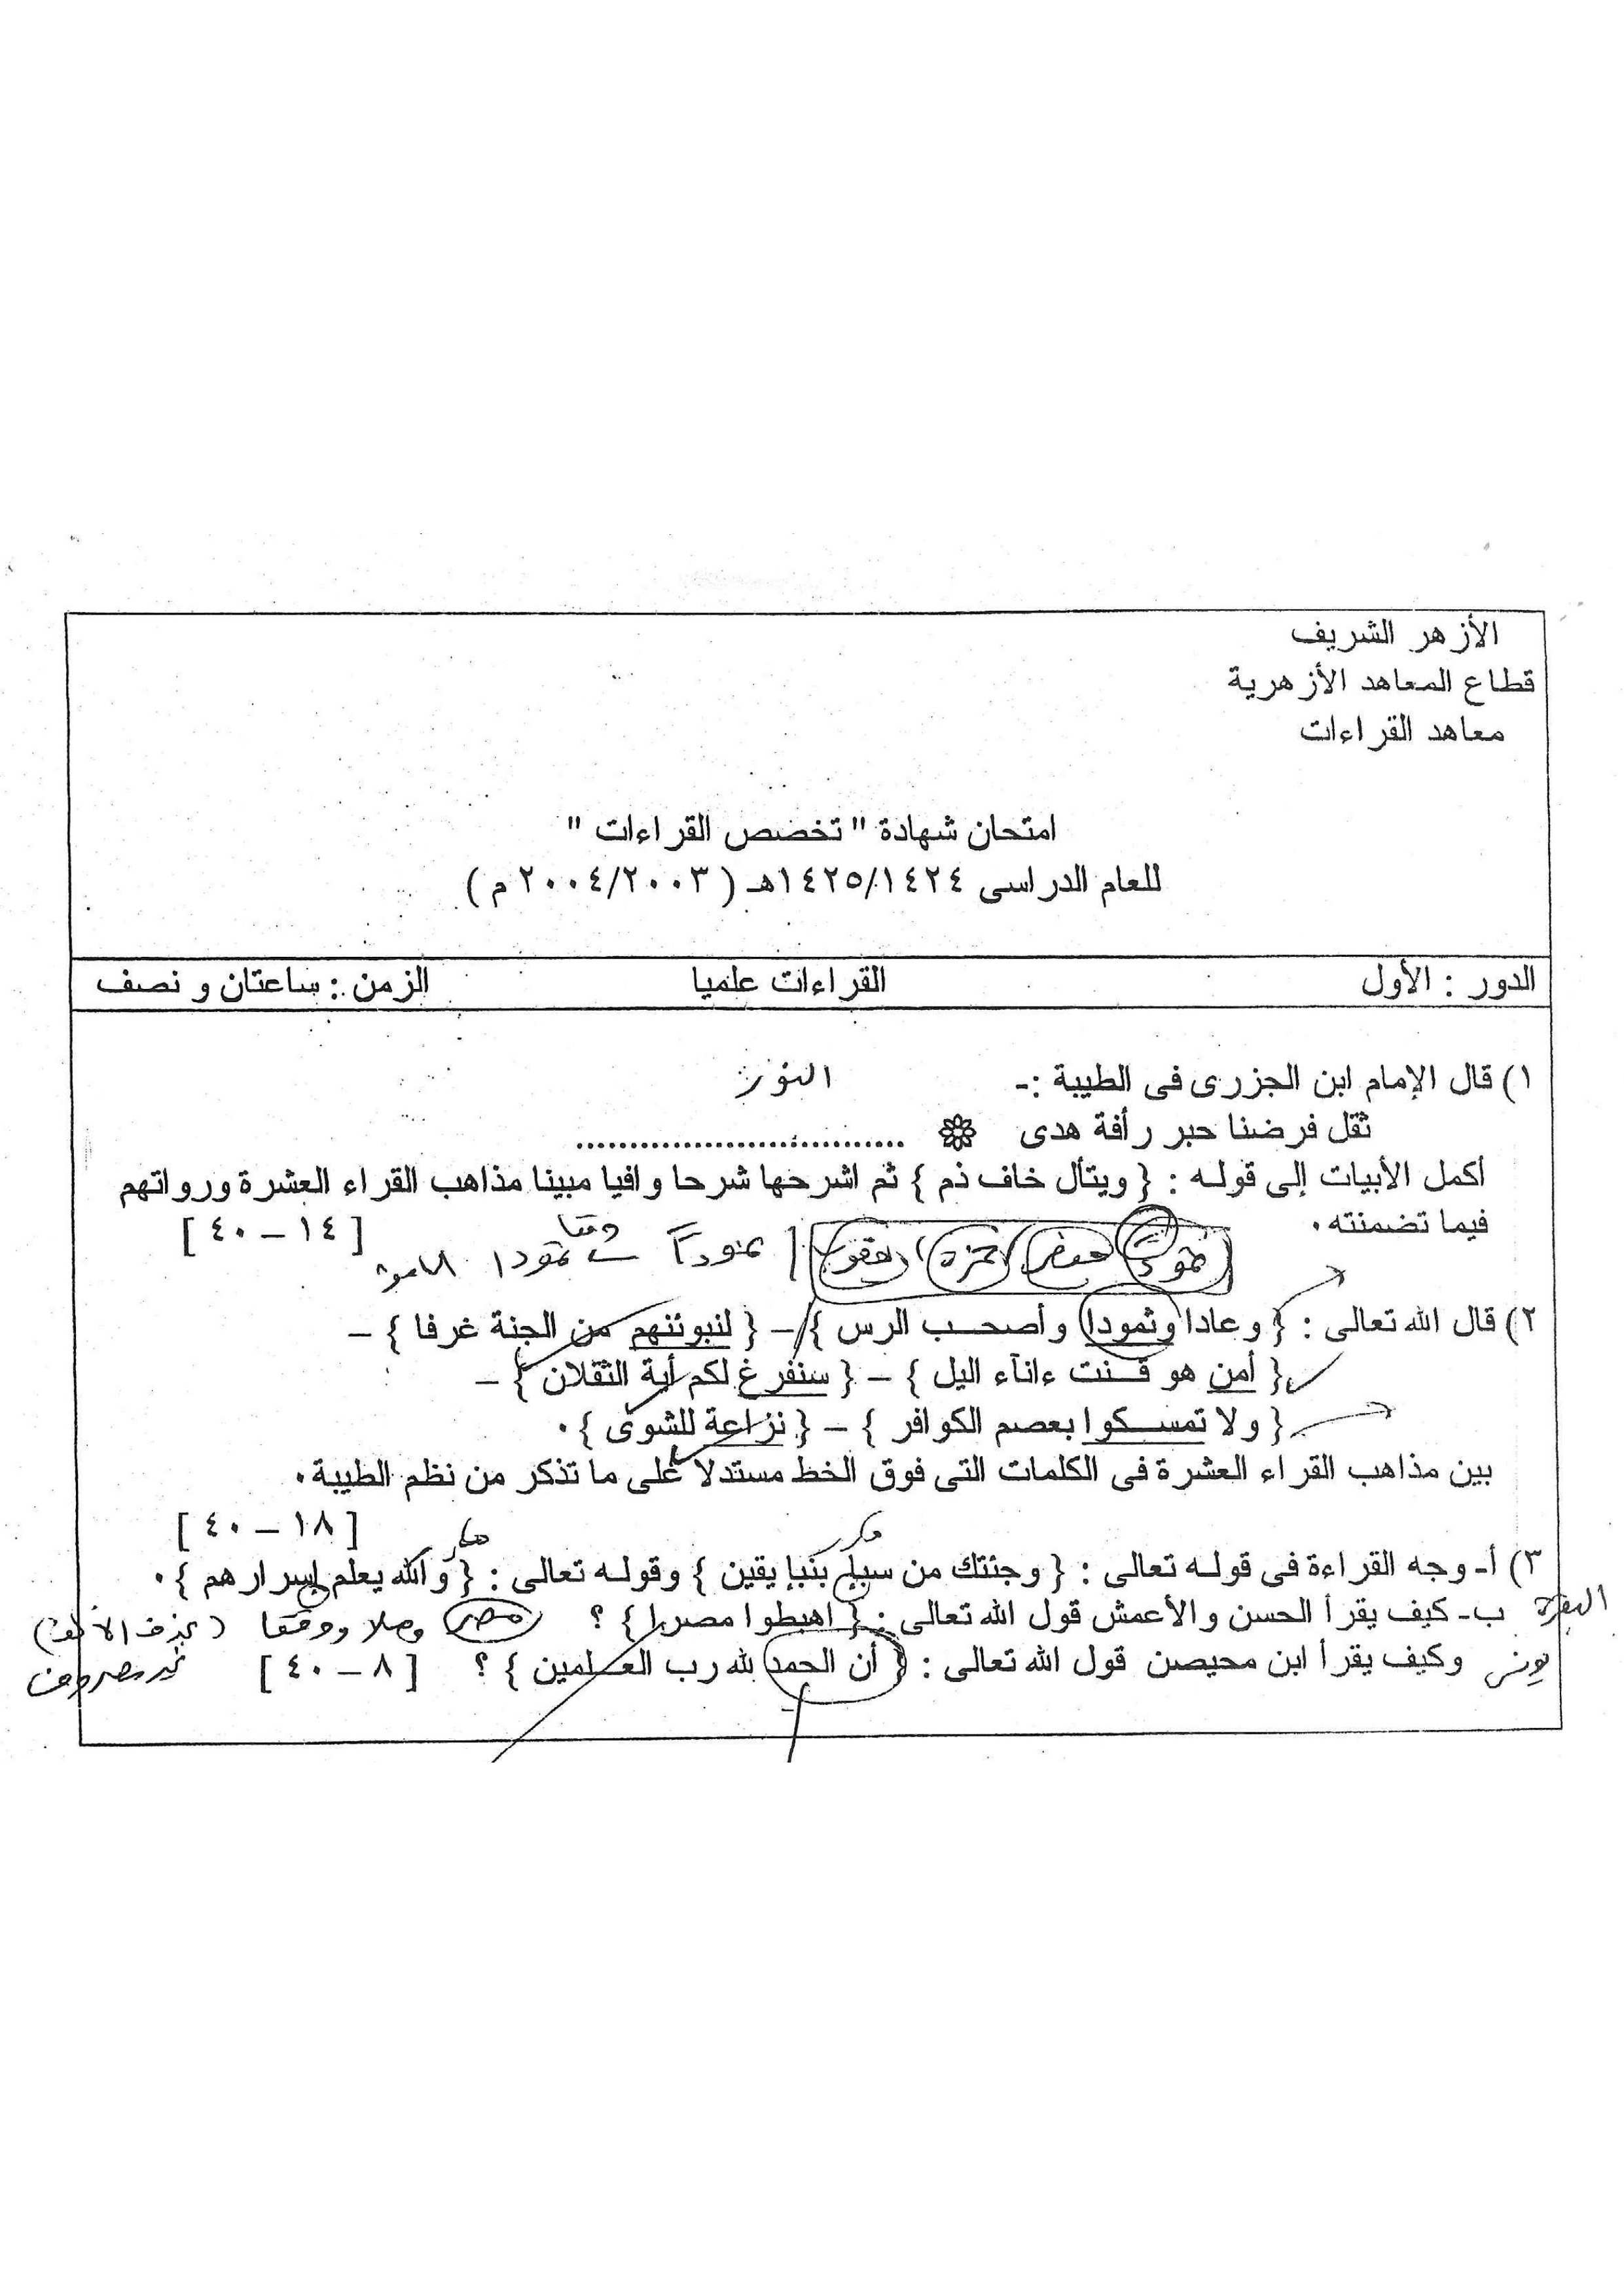 الأزهر الشريف
قطاع المعاهد الأزهرية
معاهد القراءات
امتحان شهادة " تخصص القراءات "
للعام الدراسى ١٤٢٥/١٤٢٤هـ ( ٢٠٠٤/٢٠٠٣ م )
الدور : الأول القراءات علميا الزمن : ساعتان و نصف
١) قال الإمام ابن الجزرى فى الطيبة :- النور
ثقل فرضنا حبر رأفة هدى ❁ ................................
أكمل الأبيات إلى قوله : { ويتأل خاف ذم } ثم اشرحها شرحا وافيا مبينا مذاهب القراء العشرة ورواتهم
فيما تضمنته . [ ١٤ – ٤٠ ]
ثمود حفص حمزة يعقوب ثموداً وقفا ثمودا الباقون
٢) قال الله تعالى : { وعادا وثمودا وأصحـب الرس } – { لنبوئنهم من الجنة غرفا } –
{ أمن هو قـنت ءانآء اليل } – { سنفرغ لكم أية الثقلان } –
{ ولا تمسكوا بعصم الكوافر } – { نزاعة للشوى } .
بين مذاهب القراء العشرة فى الكلمات التى فوق الخط مستدلا على ما تذكر من نظم الطيبة .
[ ١٨ – ٤٠ ]
٣) أ- وجه القراءة فى قوله تعالى : { وجئتك من سبإ بنبإ يقين } وقوله تعالى : { والله يعلم إسرارهم } .
البقرة ب- كيف يقرأ الحسن والأعمش قول الله تعالى : { اهبطوا مصرا } ؟ مصر وصلا ووقفا ( بحذف الألف )
يونس وكيف يقرأ ابن محيصن قول الله تعالى : { أن الحمد لله رب العـلمين } ؟ [ ٨ – ٤٠ ] غير مصروف